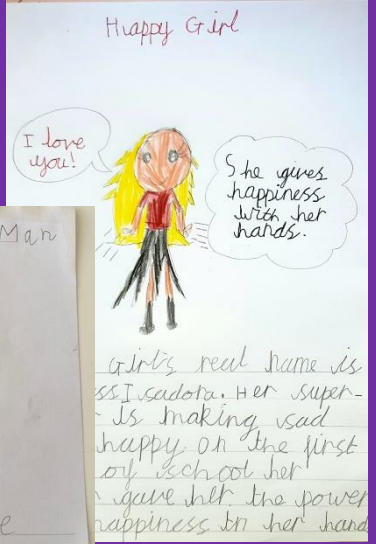 Huappy Girl
I love
you!
She gives
happiness
with her
hands.
Man
Girl's real name is
ss Isadora. Her super-
is making sad
happy on the first
of school her
gave her the power
happiness in her hand
e